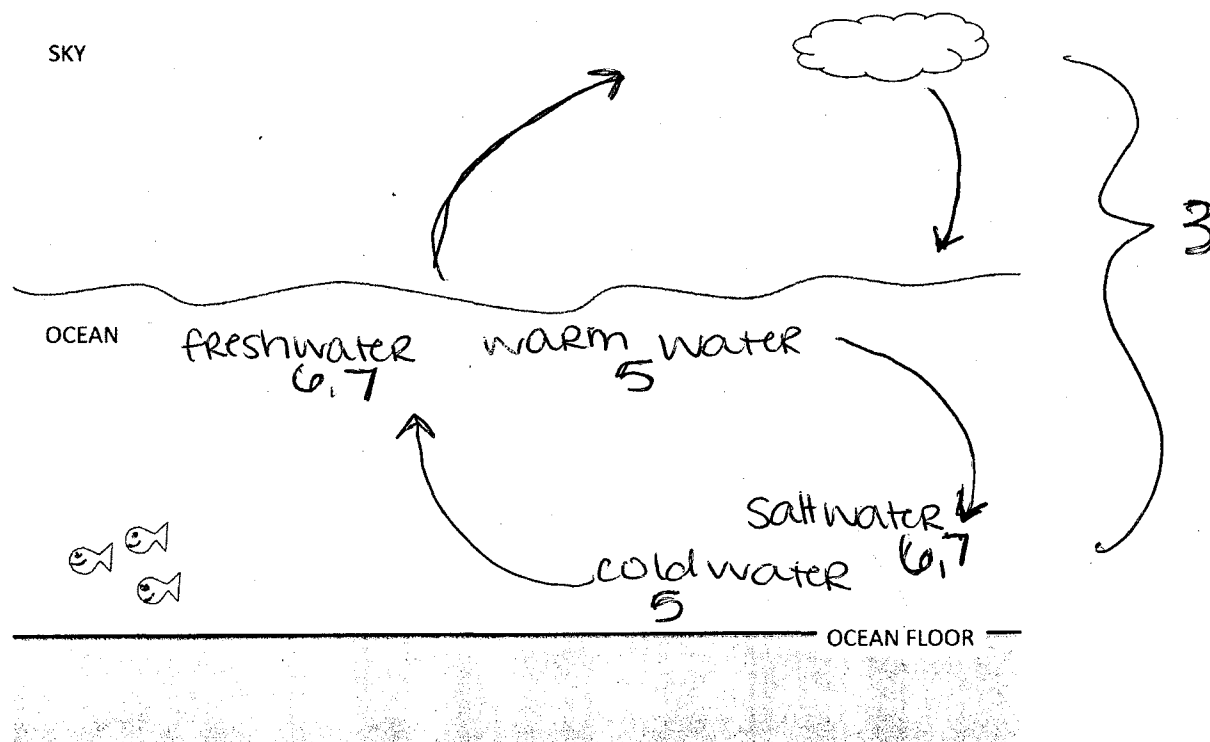 SKY
3
OCEAN
freshwater
6,7
warm water
5
saltwater
6,7
cold water
5
OCEAN FLOOR